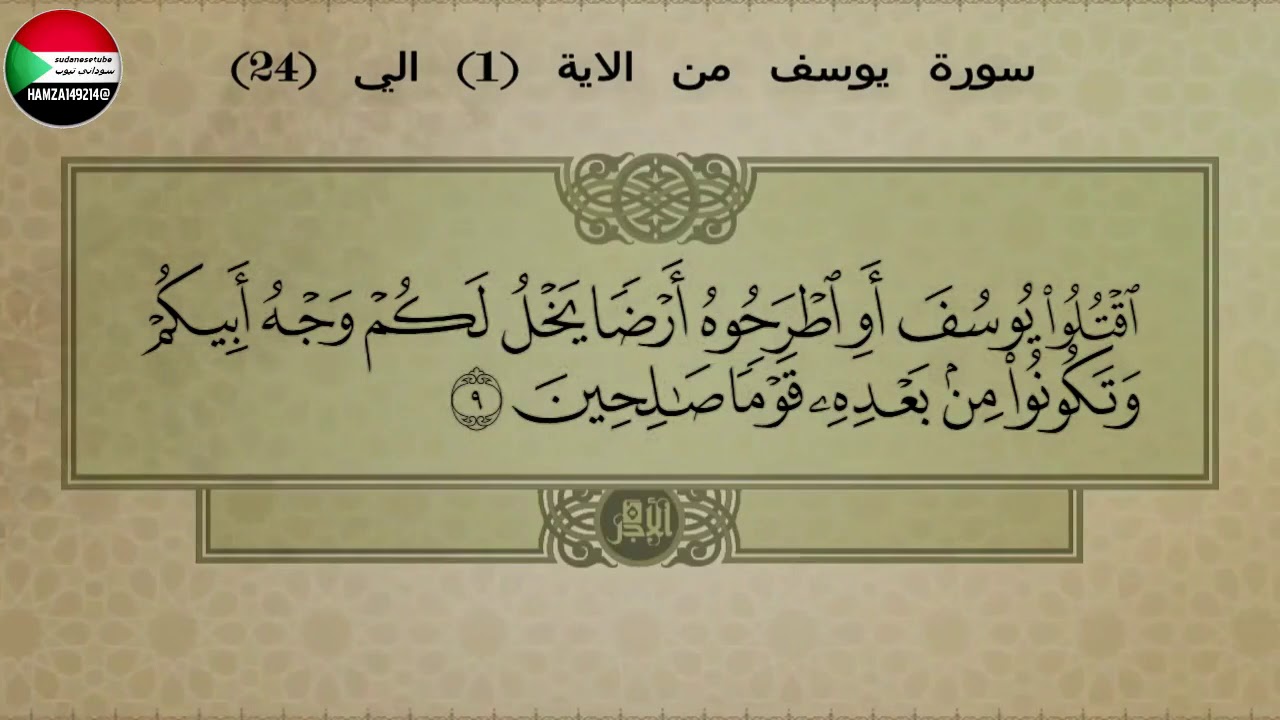 sudanesetube
سودانى تيوب
HAMZA149214@
سورة يوسف من الاية (1) الي (24)
ٱقۡتُلُواْ يُوسُفَ أَوِ ٱطۡرَحُوهُ أَرۡضٗا يَخۡلُ لَكُمۡ وَجۡهُ أَبِيكُمۡ
وَتَكُونُواْ مِنۢ بَعۡدِهِۦ قَوۡمٗا صَٰلِحِينَ ٩